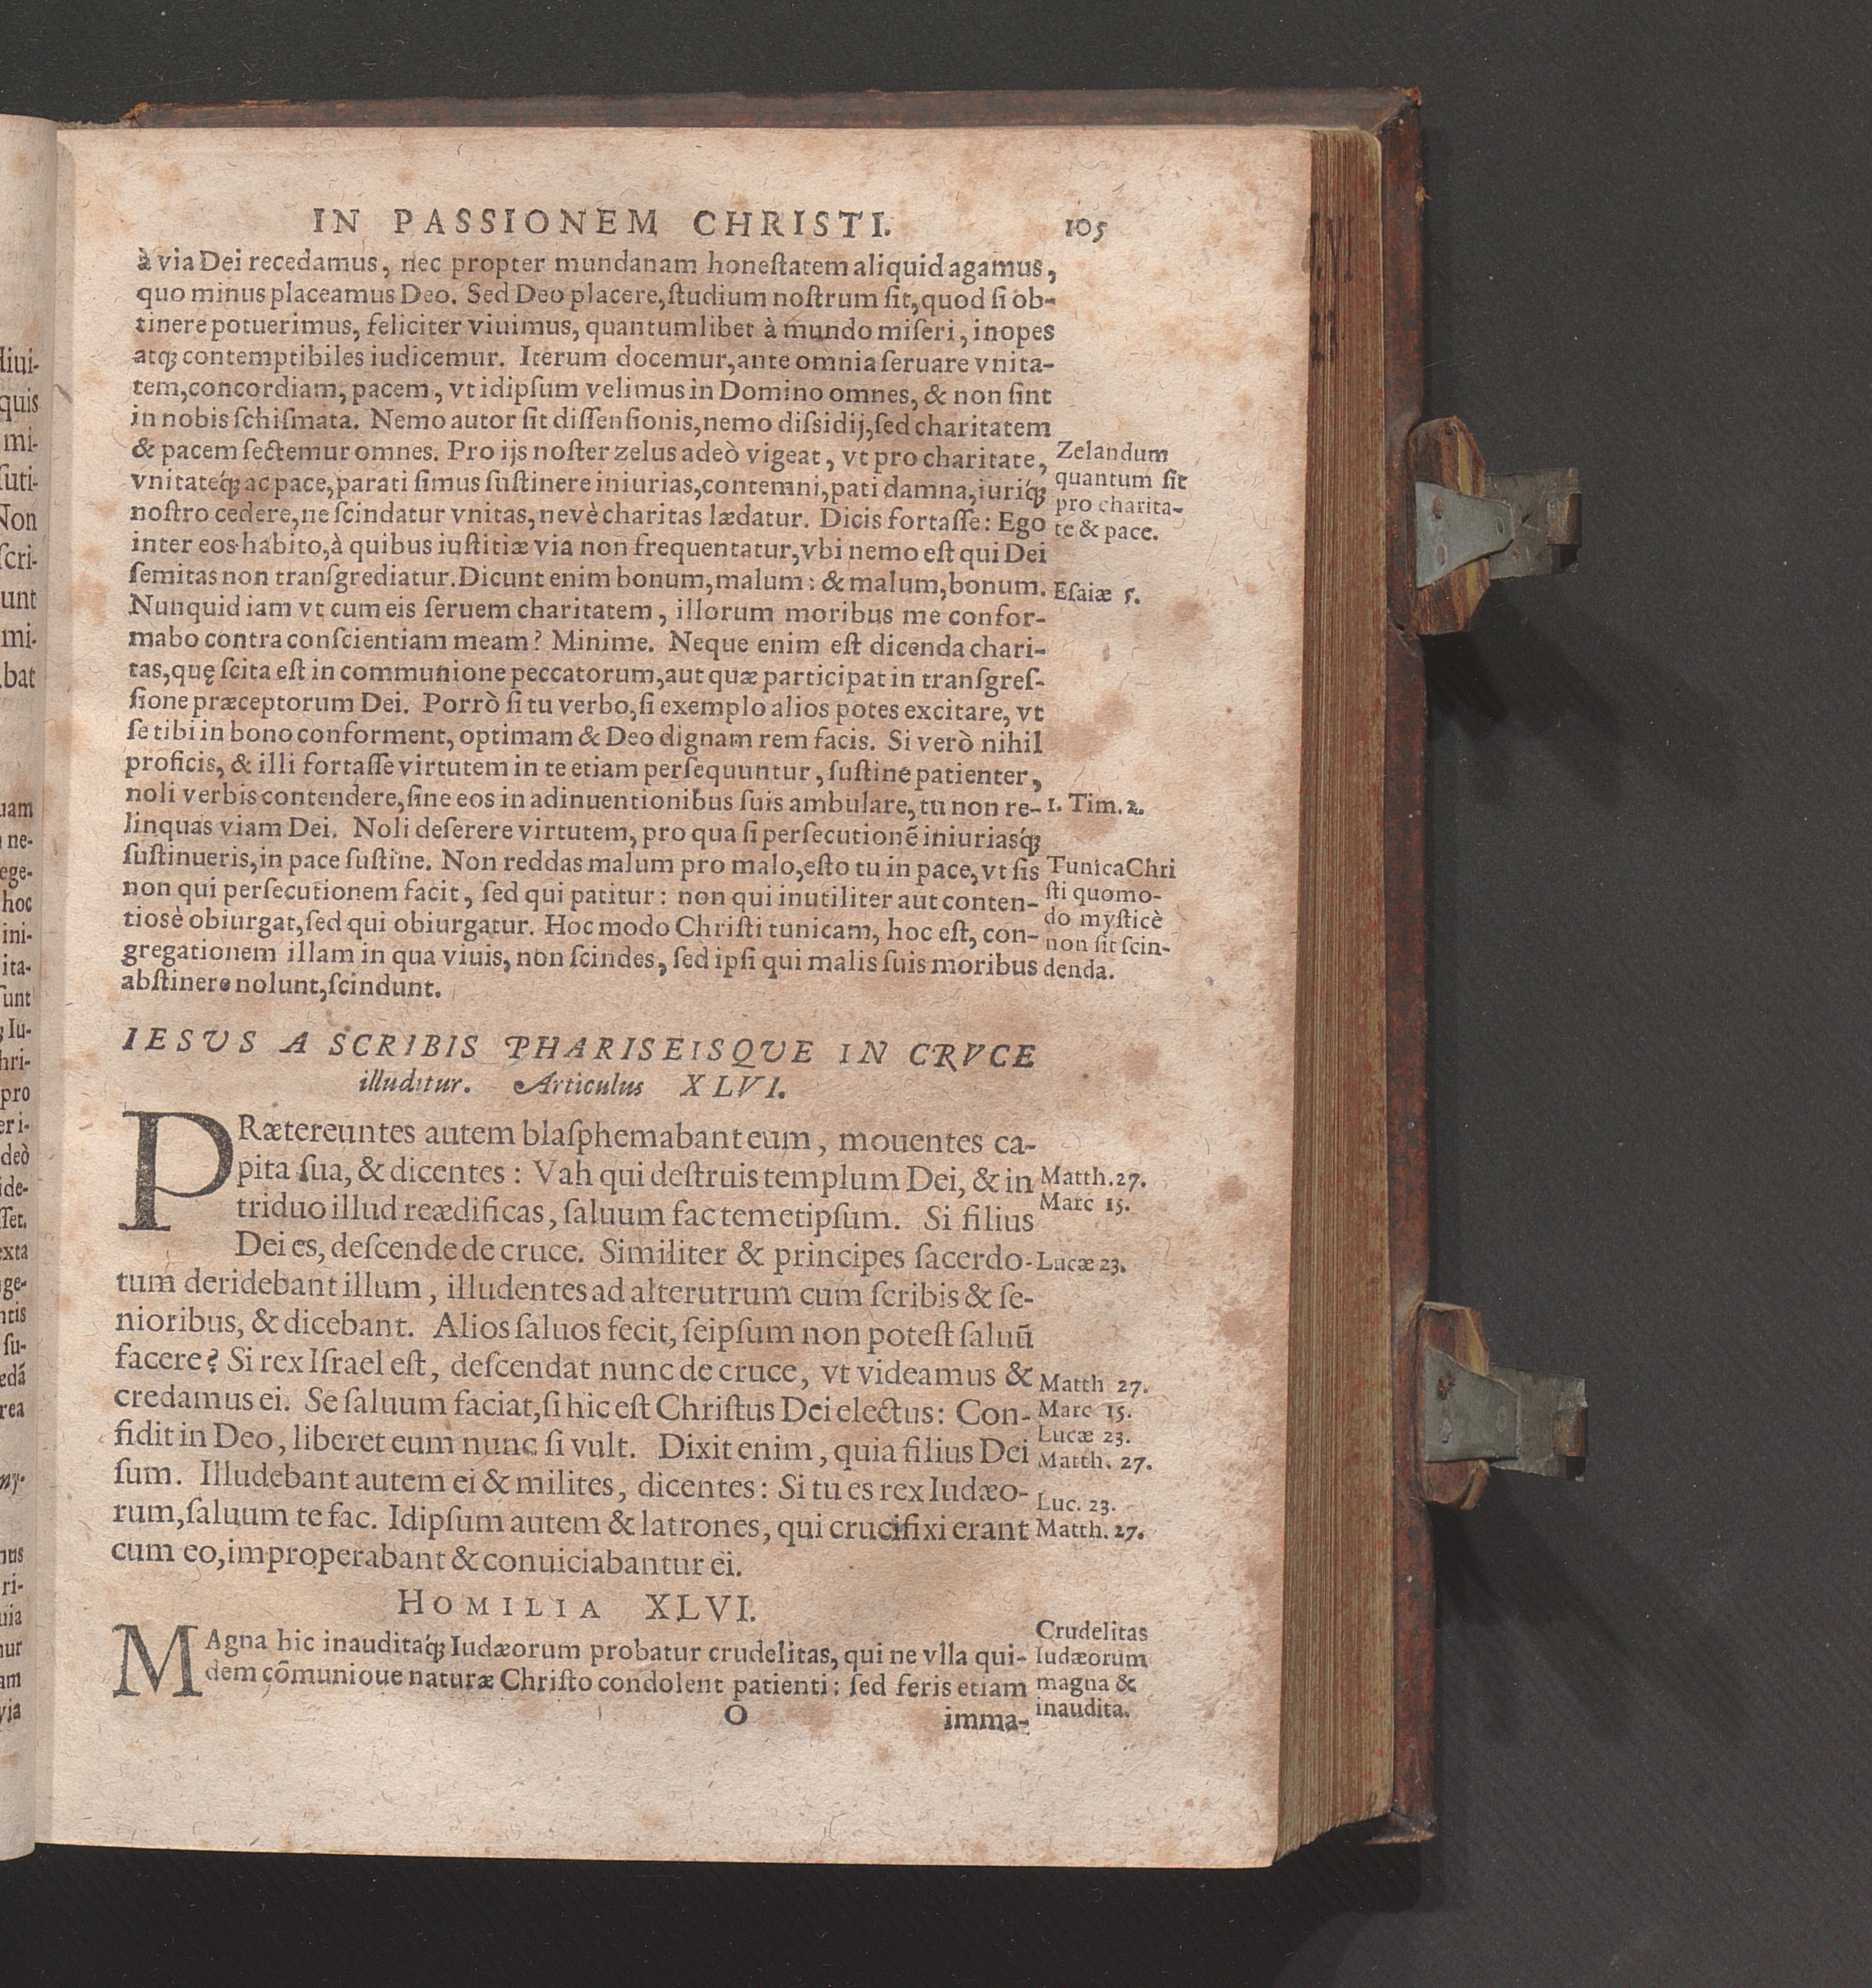 IN PASSIONEM CHRISTI. 105
à via Dei recedamus, nec propter mundanam honeſtatem aliquid agamus,
quo minus placeamus Deo. Sed Deo placere, ſtudium noſtrum ſit, quod ſi ob-
tinere potuerimus, feliciter viuimus, quantumlibet à mundo miſeri, inopes
atqꝫ contemptibiles iudicemur. Iterum docemur, ante omnia ſeruare vnita-
tem, concordiam, pacem, vt idipſum velimus in Domino omnes, & non ſint
in nobis ſchiſmata. Nemo autor ſit diſſenſionis, nemo diſsidij, ſed charitatem
& pacem ſectemur omnes. Pro ijs noſter zelus adeò vigeat, vt pro charitate,
vnitateq́ꝫ ac pace, parati ſimus ſuſtinere iniurias, contemni, pati damna, iuriq́ꝫ
noſtro cedere, ne ſcindatur vnitas, nevè charitas lædatur. Dicis fortaſſe: Ego
inter eos habito, à quibus iuſtitiæ via non frequentatur, vbi nemo eſt qui Dei
ſemitas non tranſgrediatur. Dicunt enim bonum, malum: & malum, bonum.
Nunquid iam vt cum eis ſeruem charitatem, illorum moribus me confor-
mabo contra conſcientiam meam? Minime. Neque enim eſt dicenda chari-
tas, quę ſcita eſt in communione peccatorum, aut quæ participat in tranſgreſ-
ſione præceptorum Dei. Porrò ſi tu verbo, ſi exemplo alios potes excitare, vt
ſe tibi in bono conforment, optimam & Deo dignam rem facis. Si verò nihil
proficis, & illi fortaſſe virtutem in te etiam perſequuntur, ſuſtine patienter,
noli verbis contendere, ſine eos in adinuentionibus ſuis ambulare, tu non re-
linquas viam Dei. Noli deſerere virtutem, pro qua ſi perſecutionẽ iniuriasq́ꝫ
ſuſtinueris, in pace ſuſtine. Non reddas malum pro malo, eſto tu in pace, vt ſis
non qui perſecutionem facit, ſed qui patitur: non qui inutiliter aut conten-
tiosè obiurgat, ſed qui obiurgatur. Hoc modo Chriſti tunicam, hoc eſt, con-
gregationem illam in qua viuis, non ſcindes, ſed ipſi qui malis ſuis moribus
abſtinere nolunt, ſcindunt.
Zelandum
quantum ſit
pro charita-
te & pace.
Eſaiæ 5.
1. Tim. 2.
Tunica Chri
ſti quomo-
do myſticè
non ſit ſcin-
denda.
IESVS A SCRIBIS PHARISEISQVE IN CRVCE
illuditur. Articulus XLVI.
PRætereuntes autem blaſphemabant eum, mouentes ca-
pita ſua, & dicentes: Vah qui deſtruis templum Dei, & in
triduo illud reædificas, ſaluum fac temetipſum. Si filius
Dei es, deſcende de cruce. Similiter & principes ſacerdo-
tum deridebant illum, illudentes ad alterutrum cum ſcribis & ſe-
nioribus, & dicebant. Alios ſaluos fecit, ſeipſum non poteſt ſaluũ
facere? Si rex Iſrael eſt, deſcendat nunc de cruce, vt videamus &
credamus ei. Se ſaluum faciat, ſi hic eſt Chriſtus Dei electus: Con-
fidit in Deo, liberet eum nunc ſi vult. Dixit enim, quia filius Dei
ſum. Illudebant autem ei & milites, dicentes: Si tu es rex Iudæo-
rum, ſaluum te fac. Idipſum autem & latrones, qui crucifixi erant
cum eo, improperabant & conuiciabantur ei.
Matth. 27.
Marc 15.
Lucæ 23.
Matth 27.
Marc 15.
Lucæ 23.
Matth. 27.
Luc. 23.
Matth. 27.
HOMILIA XLVI.
MAgna hic inauditaq́ꝫ Iudæorum probatur crudelitas, qui ne vlla qui-
dem cõmunioue naturæ Chriſto condolent patienti: ſed feris etiam
Crudelitas
Iudæorum
magna &
inaudita.
O imma-